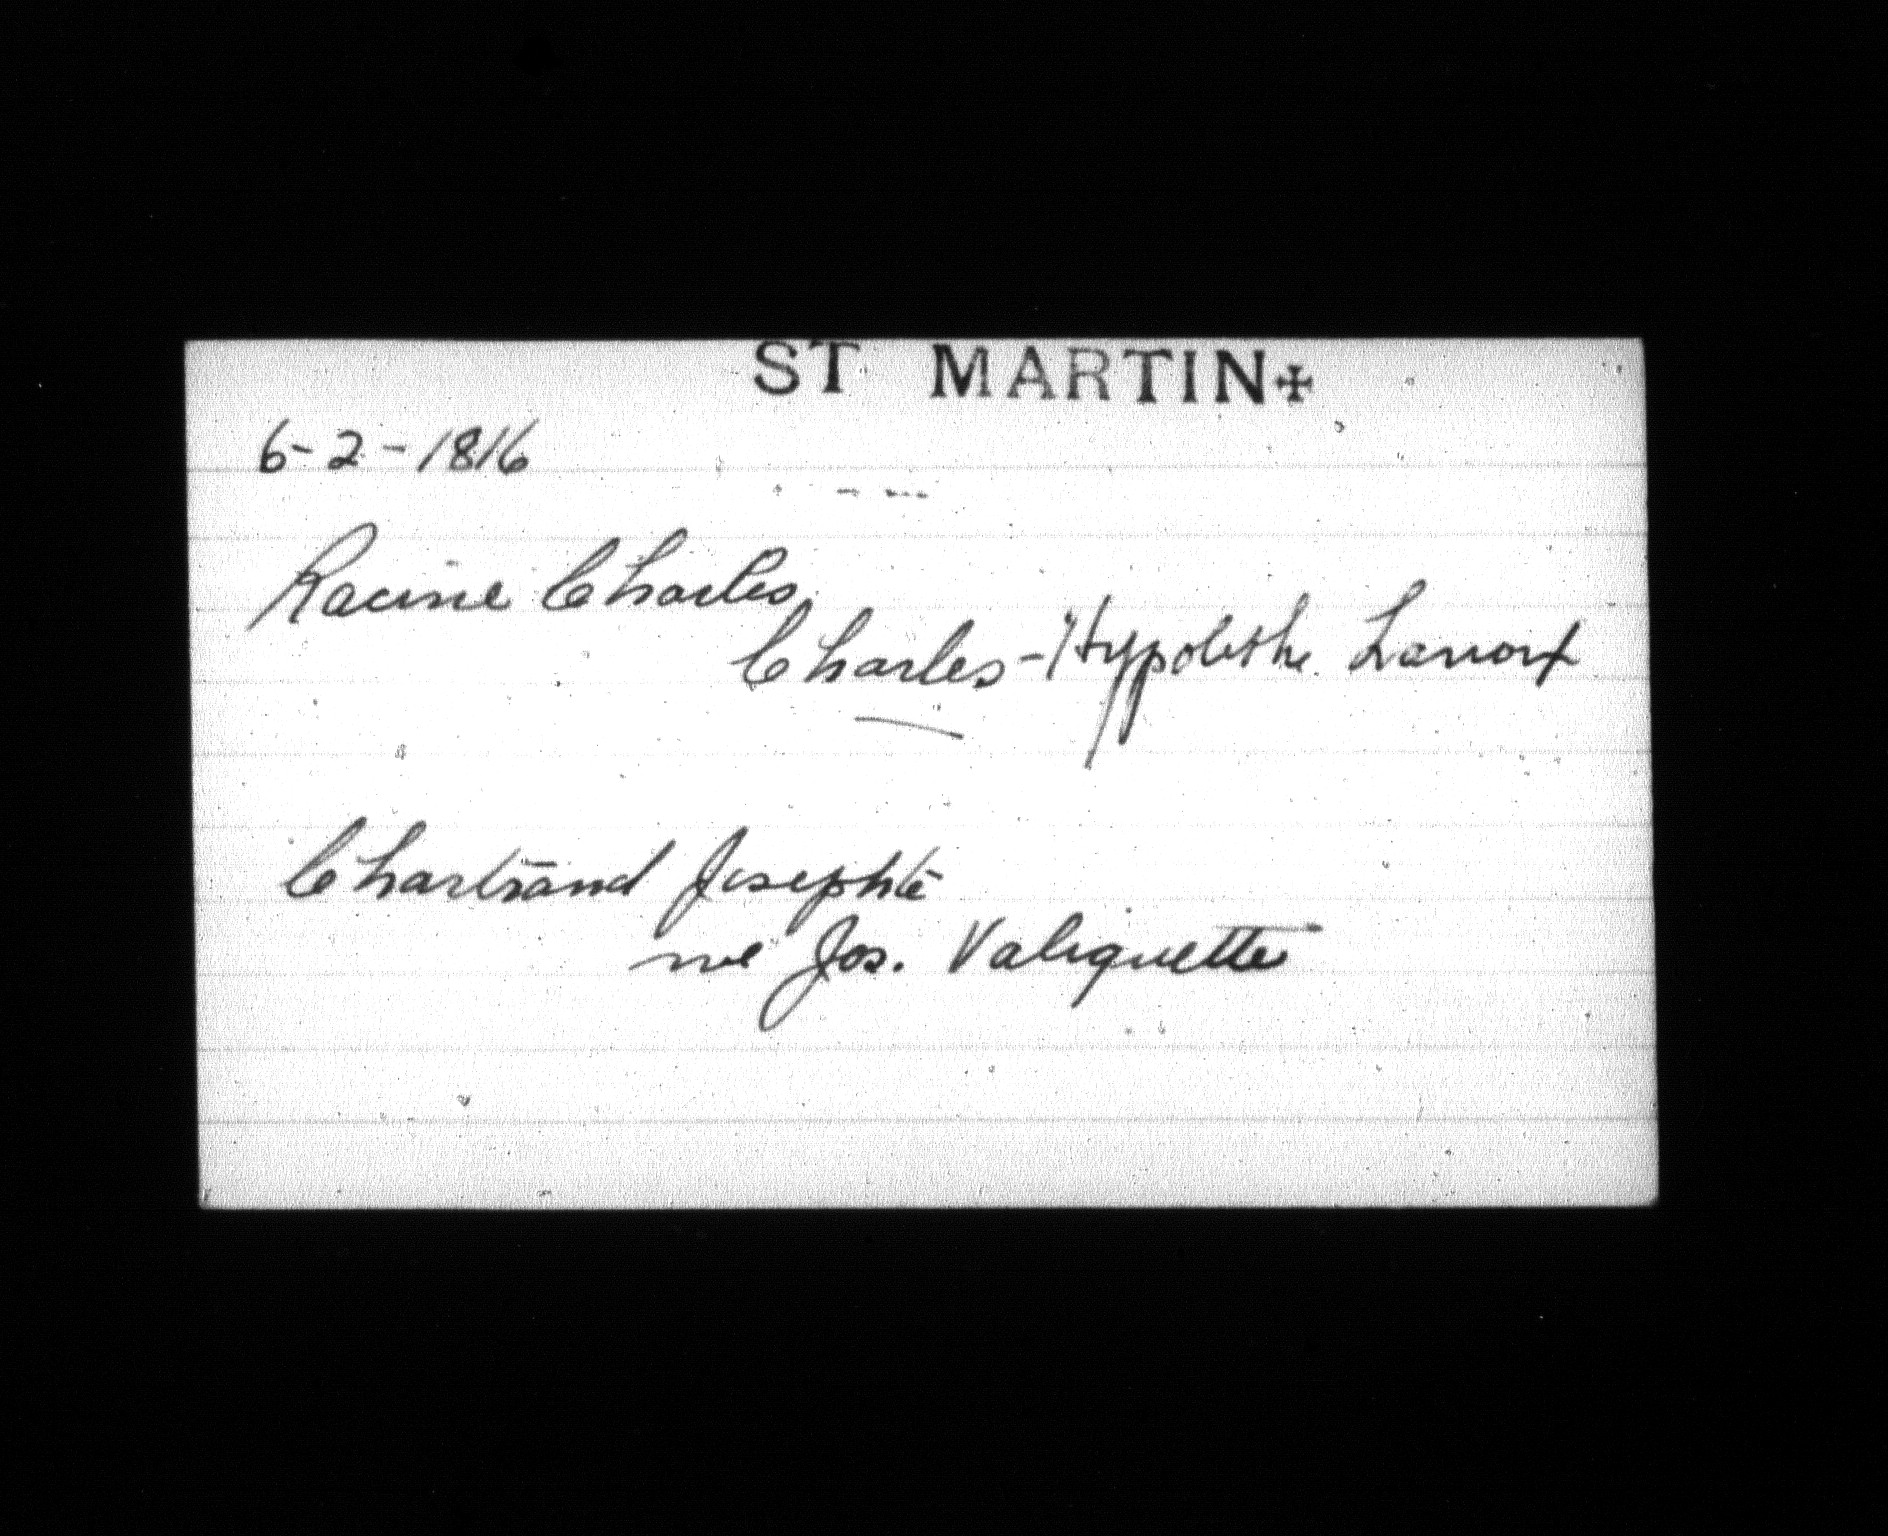 ST MARTIN✠
6-2-1816
Racine Charles
Charles-Hyppolithe Lanoix
Chartrand Josephte
me Jos. Valiquette